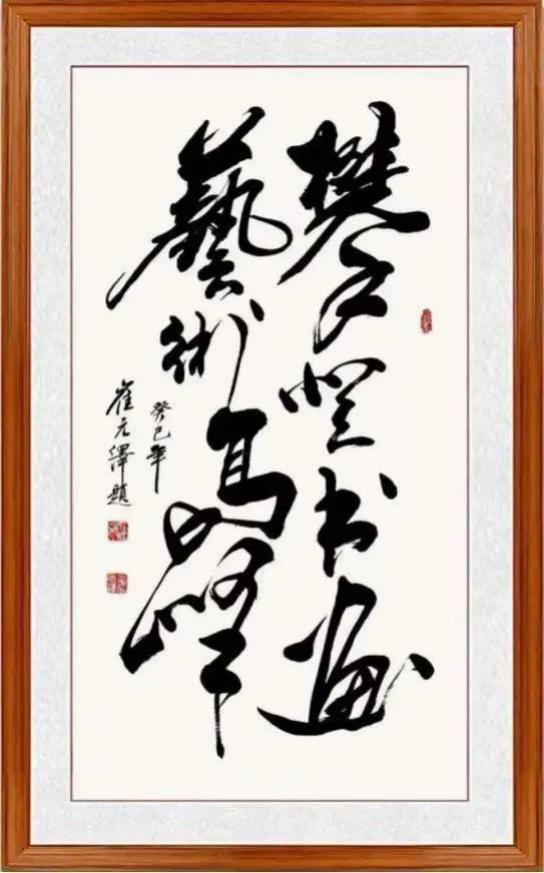 攀登书画
藝術高峰
癸巳年
崔元澤題